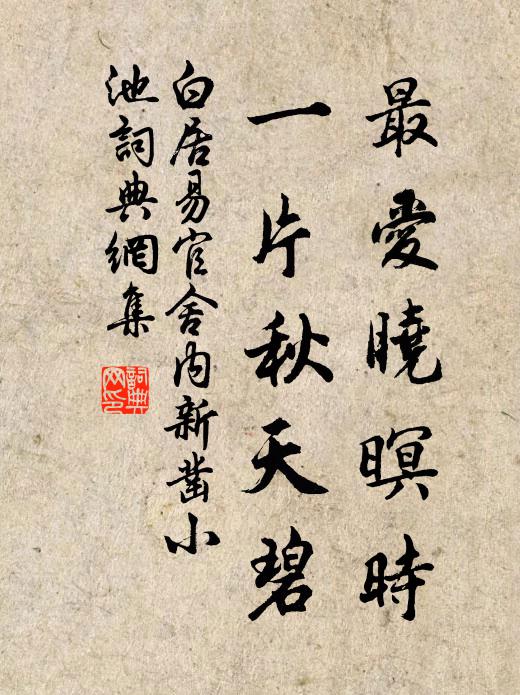 最愛曉暝時
一片秋天碧
白居易官舍內新凿小
池詞典網集
詞典
网印